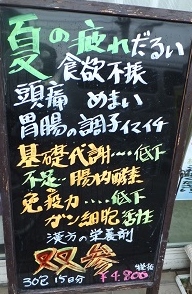 夏の疲れだるい
食欲不振
頭痛 めまい
胃腸の調子イマイチ
基礎代謝‥‥低下
不足‥腸内酵素
免疫力‥‥低下
ガン細胞活性
漢方の栄養剤
双参
30包 15日分
¥4,800